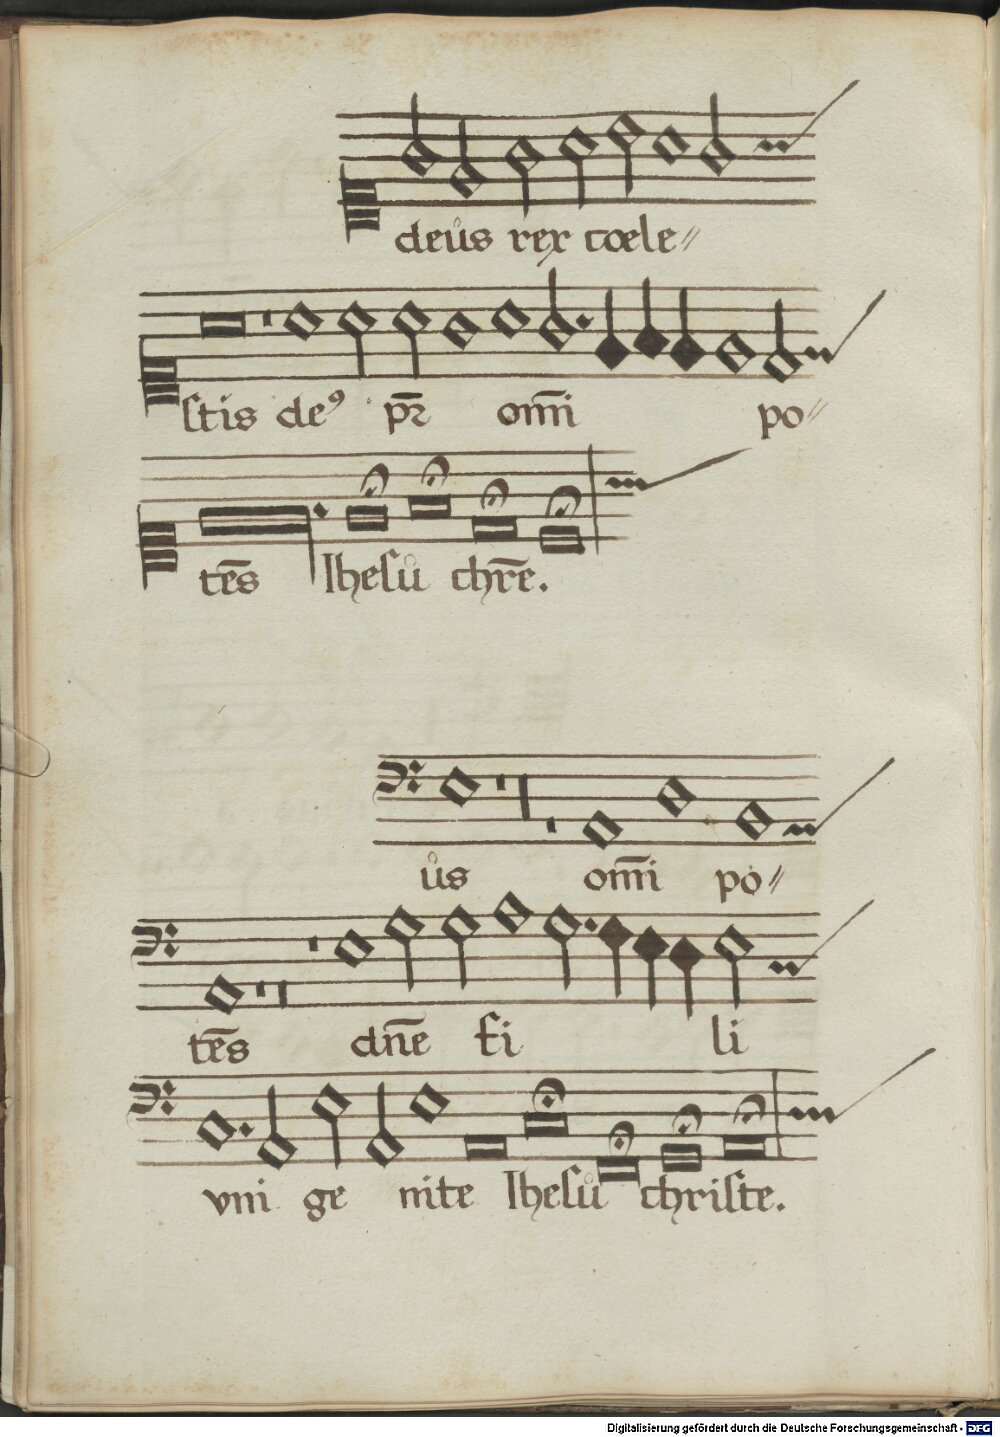 deůs rex cœle〃
ſtis deꝰ pr̄ om̄i po〃
tēs Iheſů chr̄e.
ůs om̄i po〃
tēs dn̄e fi li
vni ge nite Iheſů chriſte.
Digitalisierung gefördert durch die Deutsche Forschungsgemeinschaft - DFG